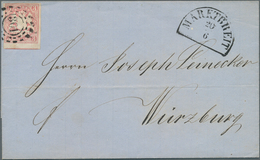 MARKTBREIT
20
6
Herrn Joseph Leinecker
Würzburg